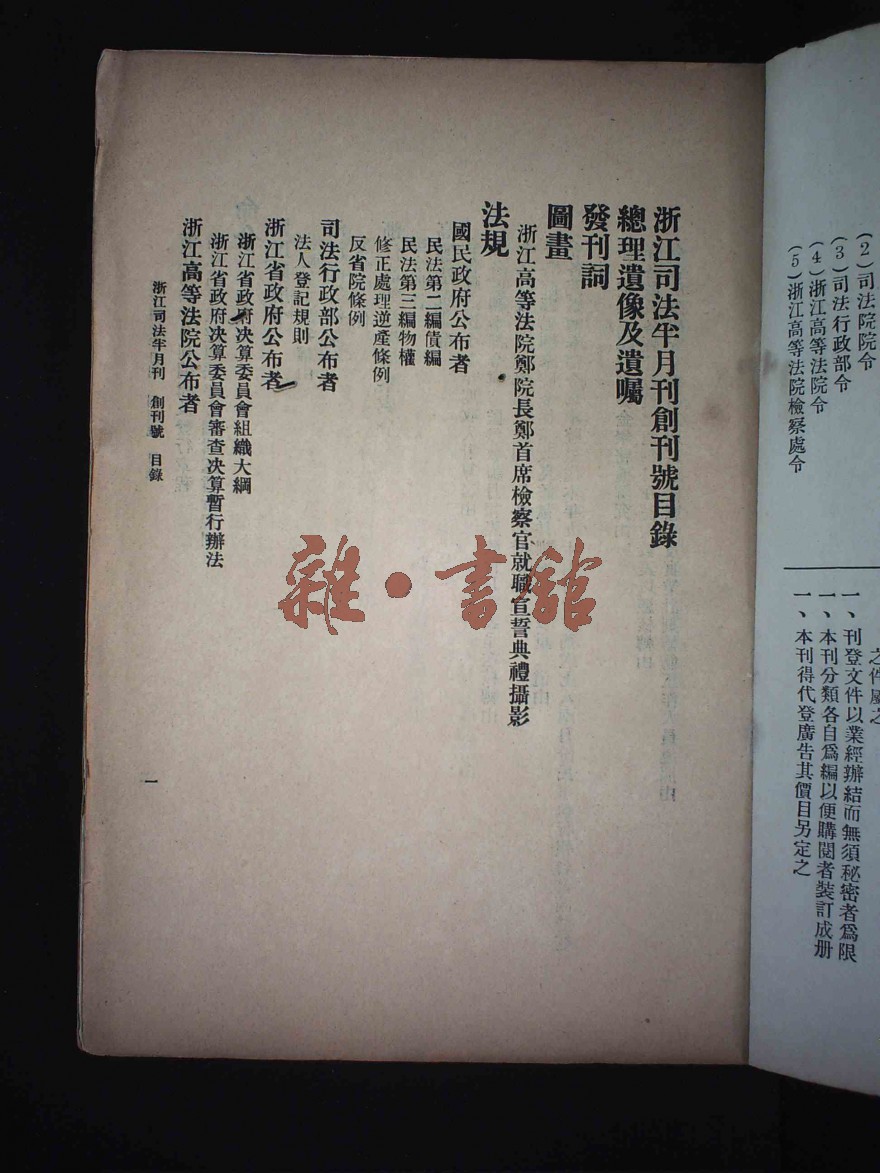 (2)司法院院令
(3)司法行政部令
(4)浙江高等法院令
(5)浙江高等法院檢察處令
之件屬之
一、刊登文件以業經辦結而無須秘密者爲限
一、本刊分類各自爲編以便購閱者裝訂成册
一、本刊得代登廣告其價目另定之
浙江司法半月刊創刊號目錄
總理遺像及遺囑
發刊詞
圖畫
浙江高等法院鄭院長鄭首席檢察官就職宣誓典禮攝影
法規
國民政府公布者
民法第二編債編
民法第三編物權
修正處理逆產條例
反省院條例
司法行政部公布者
法人登記規則
浙江省政府公布者
浙江省政府决算委員會組織大綱
浙江省政府决算委員會審查决算暫行辦法
浙江高等法院公布者
浙江司法半月刊 創刊號 目錄
一
雜·書館